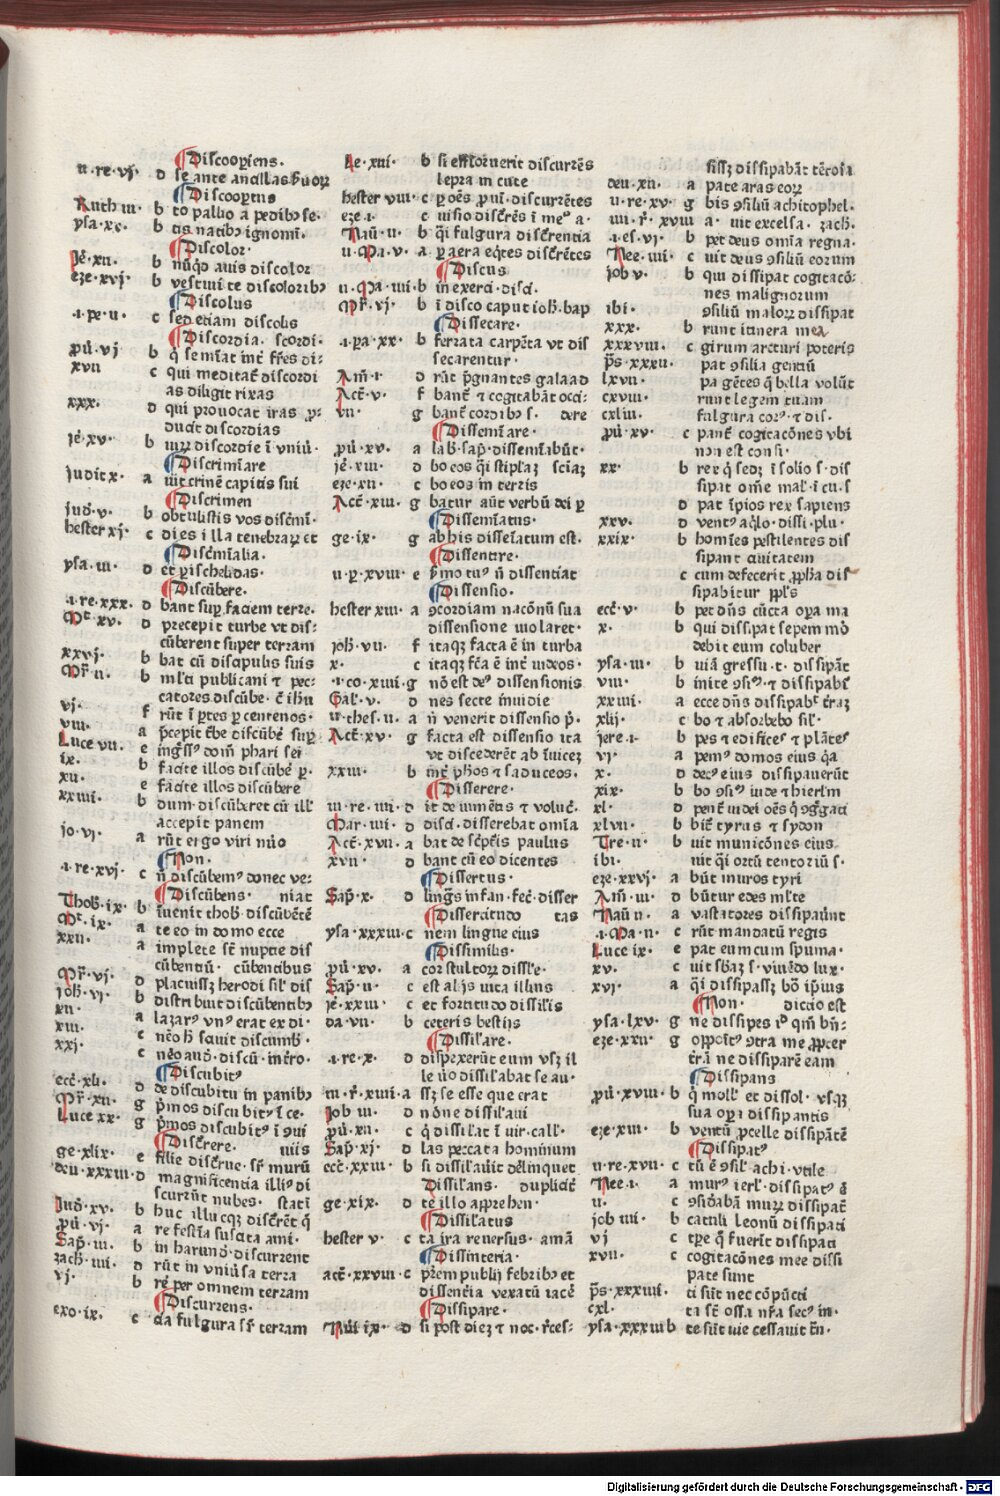 ¶Discooꝑiens.
ii·re·vj· d se ante ancillas suoꝝ
¶Discooptus
Ruth iii· b to pallio a pedibꝫ se·
ysa·xx· b tis natibꝫ ignomi·
¶Discolor·
Je·xii· b nūqd auis discolor
eze·xvj· b vestiui te discoloribꝫ
¶Discolus
·i·pe·ii· c sed etiam discolis
¶Discordia· scordi·
pū·vj b q̄ semīat int̄ fr̄es di:
xvii c qui meditat̄ discordi
as diligit rixas
xxx· d qui prouocat iras ꝓ:
ducit discordias
je·xv· b uiꝝ discordie ī vniū·
¶Discrimīare
judit x· a uit crinē capitis sui
¶Discrimen
jud·v· b obtulistis vos discīmī·
hester xj· c dies illa tenebraꝝ et
¶Discīmīalia·
ysa·iii· d et ꝑischelidas·
¶Discūbere·
·i·re·xxx· d bant suꝑ faciem terre·
Mt·xv· d precepit turbe vt dis:
cūberent super terram
xxvj· b bat cū discipulis suis
Mr̄·ii· b mlti publicani ⁊ pec:
catores discūbe· c̄ ihū
vj· f rūt ī ꝑtes ꝑ centenos·
viii· a p̄cepit t̄be discūbē suꝑ
Luce vii· e ingss̄ dom̄ phari sei
ix· b facite illos discūbē ꝑ·
xii· e facite illos discūbere
xxiiii· b dum discūberet cū ill'
accepit panem
jo·vj· a rūt ergo viri nūo
¶Non·
·i·re·xvj· c n̄ discūbem' donec ve:
¶Discūbens· niat
Thob·ix· b īuenit thob' discūbētē
Mt·ix· a te eo in domo ecce
xxii· a implete st̄ nuptie dis
cūbentiū· cūbentibus
Mr̄·vj· d placuissꝫ herodi sil' dis
joh·vj· b distribuit discūbentibꝫ
xii· a lazar' vn' erat ex di·
xiii· c nēo h̄ sciuit discumb·
xxj· c nēo aud· discū· int̄ro·
¶Discubit'
ecc̄·xli· d de discubitu in panibꝫ
Mr̄·xii· g p̄mos discubit' ī ce·
Luce xx· g p̄mos discubit' ī ꝯui
¶Discr̄rere· uiis
ge·xlix· e filie discr̄rūe· sr̄ murū
deu·xxxiii·d magnificentia illi' di
scurrūt nubes· statī
Jud·xv· b huc illucqꝫ discr̄rēt q̄
pū·vj· a re festīa suscita ami·
Sap·iii· b in harund· discurrent
zach·iiii· d rūt in vniūsa terra
vj· b re ꝑer omnem terram
¶Discurrens·
exo·ix· c da fulgura sr̄ terram
Le·xiii· b si effloruerit discurrēs
lepra in cute
hester viii· c ꝑ oēs ꝓuī· discurrētes
eze·i· c uisio discr̄rēs ī me° a·
Naū·ii· b q̄i fulgura discr̄rentia
ii·Ma·v· a ꝑ aera eq̄tes discr̄rētes
¶Discus
ii·Ma·iiii·b in exerci· disci·
Mr̄·vj· b ī disco caput ioh̄·bap
¶Dissecare·
·i·pa·xx· b ferrata carpēta vt dis
secarentur·
Am·i· d rūt p̄gnantes galaad
Act̄·v· f bant̄ ⁊ cogitabāt occi:
vii· g bant̄ cordibꝫ s· dere
¶Dissemīare·
pū·xv· a lab·sap· dissemīabūt·
je·xiii· d bo eos q̄i stiplaꝫ sciaꝫ
eze·xii· c bo eos in terris
Act̄·xiii· g batur aūt verbū dei ꝑ
¶Dissemīatus·
ge·ix· g ab his disseīatum est·
¶Dissentire·
ii·ꝑ·xviii· e p̄mo tu' n̄ dissentiat
¶Dissensio·
hester xiii· a ꝯcordiam nacōnū sua
dissensione uiolaret·
joh·vii· f itaqꝫ facta ē in turba
x· c itaqꝫ fc̄a ē int̄ iudeos·
·i·co·xiiii·g nō est de' dissensionis
Gal·v· d nes secte inuidie
ii·thes·ii· a n̄ venerit dissensio p̄·
Act̄·xv· g facta est dissensio ita
vt discederēt ab īuiceꝫ
xxiii· b int̄ ph̄os ⁊ saduceos·
¶Disserere·
iii·re·iiii·d it de iumētis ⁊ voluc̄·
Mar·iiii· d disci·disserebat omīa
Act̄·xvii·a bat de sc̄pt̄is paulus
xvii· d bant cū eo dicentes
¶Dissertus·
Sap·x· d lingꝰs infan·fec̄·disser
¶Dissertitudo tas
ysa·xxxiii·c nem lingue eius
¶Dissimilis·
pū·xv· a cor stultoꝝ dissīle·
Sap·ii· c est alijs uita illius
je·xxiii· c et fortitudo dissīlis
da·vii· b ceteris bestijs
¶Dissil'are·
·i·re·x· d dispexerūt eum vsꝫ il
le ūo dissil'abat se au·
iii·r̄·xxii·a ssꝫ se esse que erat
Job iii· d nōne dissil'aui
pū·xii· c q̄ dissil'at ī uir·call'·
Sap·xj· d las peccata hominum
ecc̄·xxiii· b si dissil'auit̄ delinquet
Dissil'ans· dupliciť
ge·xix· d te illo apprehen·
¶Dissil'atus
hester v· c ta ira reuersus· amā
¶Dissinteria·
act̄·xxviii·c prem publij febribꝫ et
dissent̄ia vexatū iacē
¶Dissipare·
Nūi ix· d si post dieꝫ ⁊ noc·r̄ces:
sissꝫ dissipabāt tētoria
deu·xii· a pate aras eoꝝ
ii·re·xv· g bis ꝯsiliū achitophel·
iiii·r̄·xviii a· uit excelsa· zach·
·i·es·vj· b pet deus omīa regna·
Nee·iiii· c uit deus ꝯsiliū eorum
job v· b qui dissipat cogitacō:
nes malignorum
ibi· ꝯsiliū maloꝝ dissipat
xxx· b runt itinera mea
xxxviii· c girum arcturi poteris
ps·xxxii· pat ꝯsilia gentiū
lxvii· pa gētes q̄ bella volūt
cxviii· runt legem tuam
cxliii· fulgura cor' ⁊ dis·
pū·xv· c pant̄ cogitacōnes vbi
non est consi·
xx· b rex q̄ sedꝫ ī solio s·dis
sipat om̄e mal'·i cu·s
d pat īpios rex sapiens
xxv· d vent' aq̄lo·dissi·plu·
xxix· b homīes pestilentes dis
sipant ciuitatem
c cum defecerit ꝓph̄a dis
sipabitur ppl's
ecc̄·v· b pet dn̄s cūcta oꝑa ma
x· b qui dissipat sepem mō
debit eum coluber
ysa·iii· b uiā gressu·t·dissipāt
viii· b inite ꝯsi' ⁊ dissipabī
xxiiii· a ecce dn̄s dissipab' tr̄aꝫ
xlij· c bo ⁊ absorbebo sil'·
jere·i· b pes ⁊ edifices ⁊ plātes
vj· a pem' domos eius q̄a
x· d dec' eius dissipauerūt
xix· b bo ꝯsi' iude ⁊ hierl'm
xl· d pent̄ iudei oēs q̄ ꝯg̊gati
xlvii· b bit̄ tyrus ⁊ sydon
Tre·ii· b uit municōnes eius
ibi· uit q̄i ortū tentoriū s·
eze·xxvj· a būt muros tyri
Am·iii· d būtur edes ml'te
Naū ii· a vastatores dissipauūt
·i·Ma·ii· c rūt mandatū regis
Luce ix· e pat eum cum spuma·
xv· c uit sbāꝫ s·viuēdo lux·
xvj· a q̄i dissipassꝫ bō ip̄ius
¶Non· dictio est
ysa·lxv· g ne dissipes i° qm̄ bn̄:
eze·xxii· g opposit' ꝯtra me ꝓpter
tr̄ā ne dissiparē eam
¶Dissipans
pū·xviii·b q̄ moll' et dissol·vsqꝫ
sua oꝑa dissipantis
eze·xiii· b ventū ꝓcelle dissipātē
¶Dissipat'
ii·re·xvii· c tū ē ꝯsil'·achi·vtile
Nee·i· a mur' ierl'·dissipat' ē
ii· c ꝯsidābā muꝝ dissipat̄
job iiii· b catuli leonū dissipati
vj c tꝑe q̄ fuerīt dissipati
xvii· c cogitacōnes mee dissi
pate sunt
ps·xxxiiii· ti sūt nec cōpūcti
cxl· ta st̄ ossa nr̄a sec' in·
ysa·xxxiii b te sūt uie cessauit tn̄·
Digitalisierung gefördert durch die Deutsche Forschungsgemeinschaft - DFG